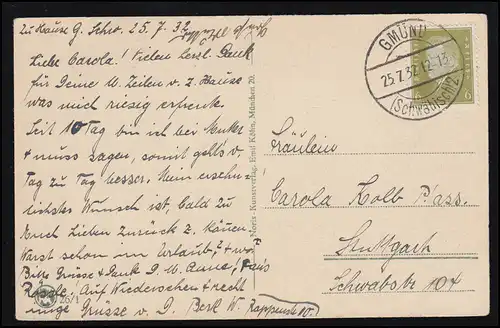 zu Hause G. 25.7.32
Liebe Carola! Vielen herzl. Dank
für Deine u. Zeilen v. z. Hause
was mich riesig erfreute.
Seit 10 Tag bin ich bei Mutter
+ muss sagen, somit geht's v.
Tag zu Tag besser. Mein
Wunsch ist, bald zu
Euch Lieben zurück z. können.
Warst schon im Urlaub,? + wo
Bitte Grüsse + Dank D. M. Auf Wiedersehen + recht
innige Grüsse v. D. W.
26/1
Kunstverlag Emil Köhn, München 20.
GMÜND
25.7.32.12-13
(Schwäbisch) 2
6
Fräulein
Carola Kolb
Stuttgart
Schwabstr 104